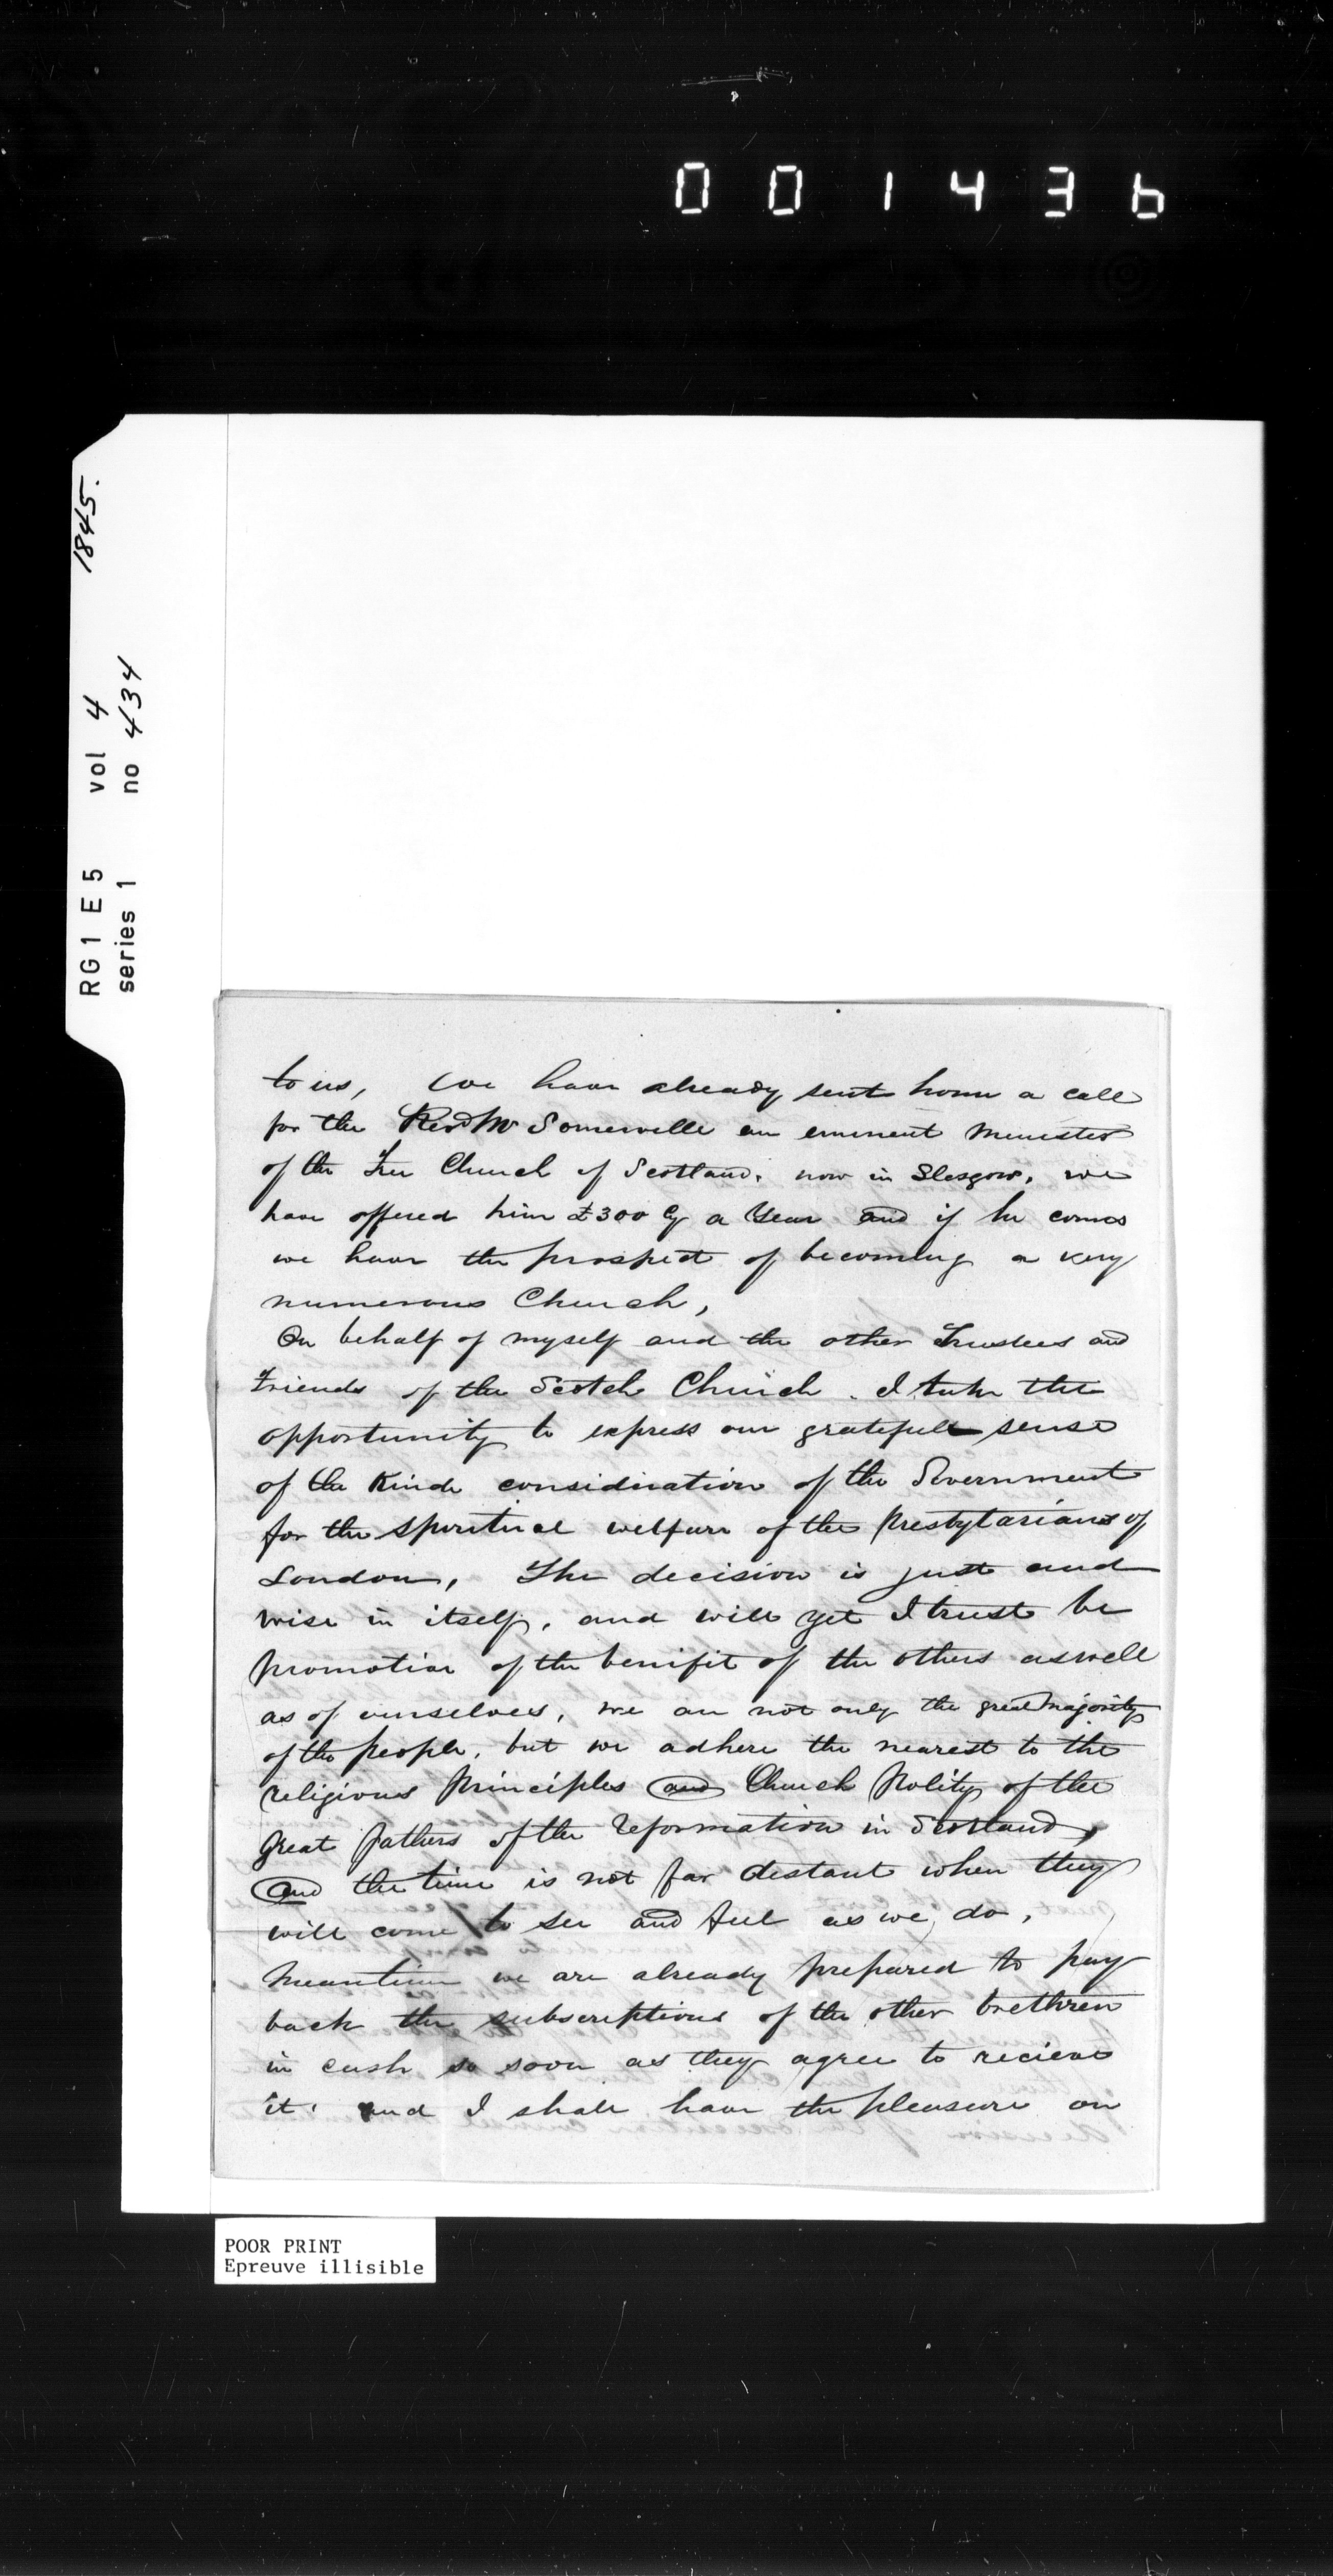 001436
1845.
RG1 E5 vol 4
series 1 no 434
to us, We have already sent home a call
for the Revd Mr Somerville an eminent Minister
of the Free Church of Scotland. now in Glasgow. we
have offered him £300 Cy a Year and if he comes
we have the prospect of becoming a very
numerous Church,
On behalf of myself and the other Trustees and
Friends of the Scotch Church. I take the
opportunity to express our gratefull sense
of the Kind consideration of the Government
for the spiritual welfare of the Presbytarians of
London, The decision is just and
wise in itself, and will yet I trust be
promotive of the benifit of the others as well
as of ourselves, we are not only the great majority
of the people, but we adhere the nearest to the
religious Principles and Church Polity of the
great fathers of the reformation in Scotland,
and the time is not far distant when they
will come to see and feel as we do,
Meantime we are already prepared to pay
back the subscriptions of the other brethren
in cash so soon as they agree to recieve
it, and I shall have the pleasure on
POOR PRINT
Epreuve illisible